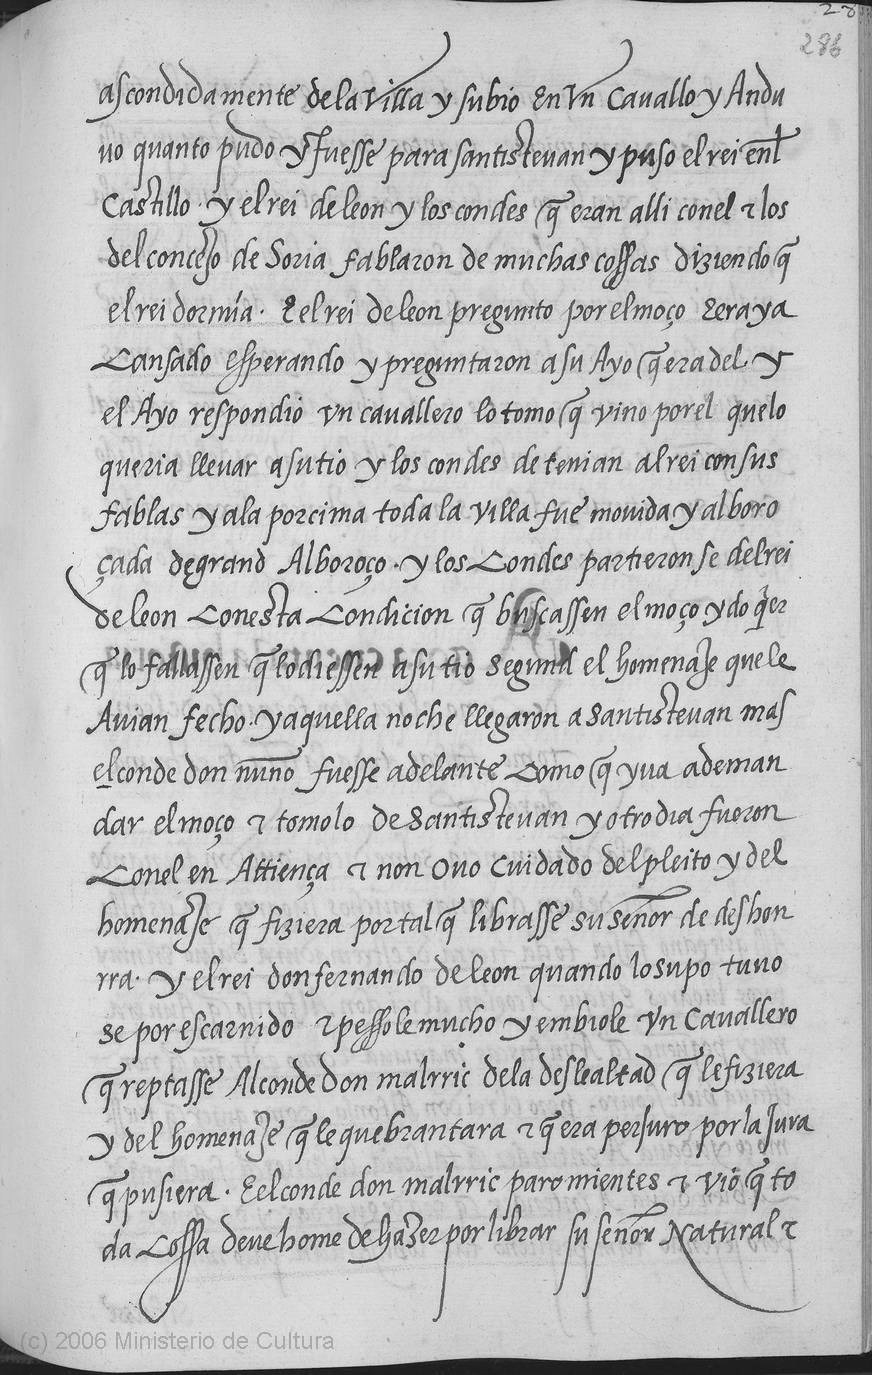 286
ascondidamente de la villa y subio En vn Cavallo y Andu
uo quanto pudo y fuesse para santisteuan y puso el rei enl
Castillo · y el rei de leon y los condes q̃ eran alli conel τ los
del concejo de Soria fablaron de muchas cossas diziendo q̃
el rei dormia · E el rei de leon pregunto por el moço E era ya
Cansado esperando y preguntaron a su Ayo q̃ era del y
el Ayo respondio vn cavallero lo tomo q̃ vino por el que lo
queria llevar a su tio y los condes detenian al rei con sus
fablas y ala por cima toda la villa fue mouida y alboro
çada de grand Alboroço · y los Condes partieron se del rei
de leon Con esta Condicion q̃ buscassen el moço y do q̃er
q̃ lo fallassen q̃ lo diessen a su tio segund el homenaje que le
Avian fecho · y aquella noche llegaron a santisteuan mas
el conde don nuno fuesse adelante Como q̃ yua a deman
dar el moço τ tomolo de Santisteuan y otro dia fueron
Conel en Attiença τ non ovo cuidado del pleito y del
homenaje q̃ fiziera por tal q̃ librasse su señor de deshon
rra · y el rei don fernando de leon quando lo supo tuuo
se por escarnido τ pessole mucho y embiole vn Cavallero
q̃ reptasse Al conde don malrric de la deslealtad q̃ le fiziera
y del homenaje q̃ le quebrantara τ q̃ era perjuro por la jura
q̃ pusiera · E el conde don malrric paro mientes τ vio q̃ to
da Cossa deve home de hazer por librar su señor Natural τ
(c) 2006 Ministerio de Cultura